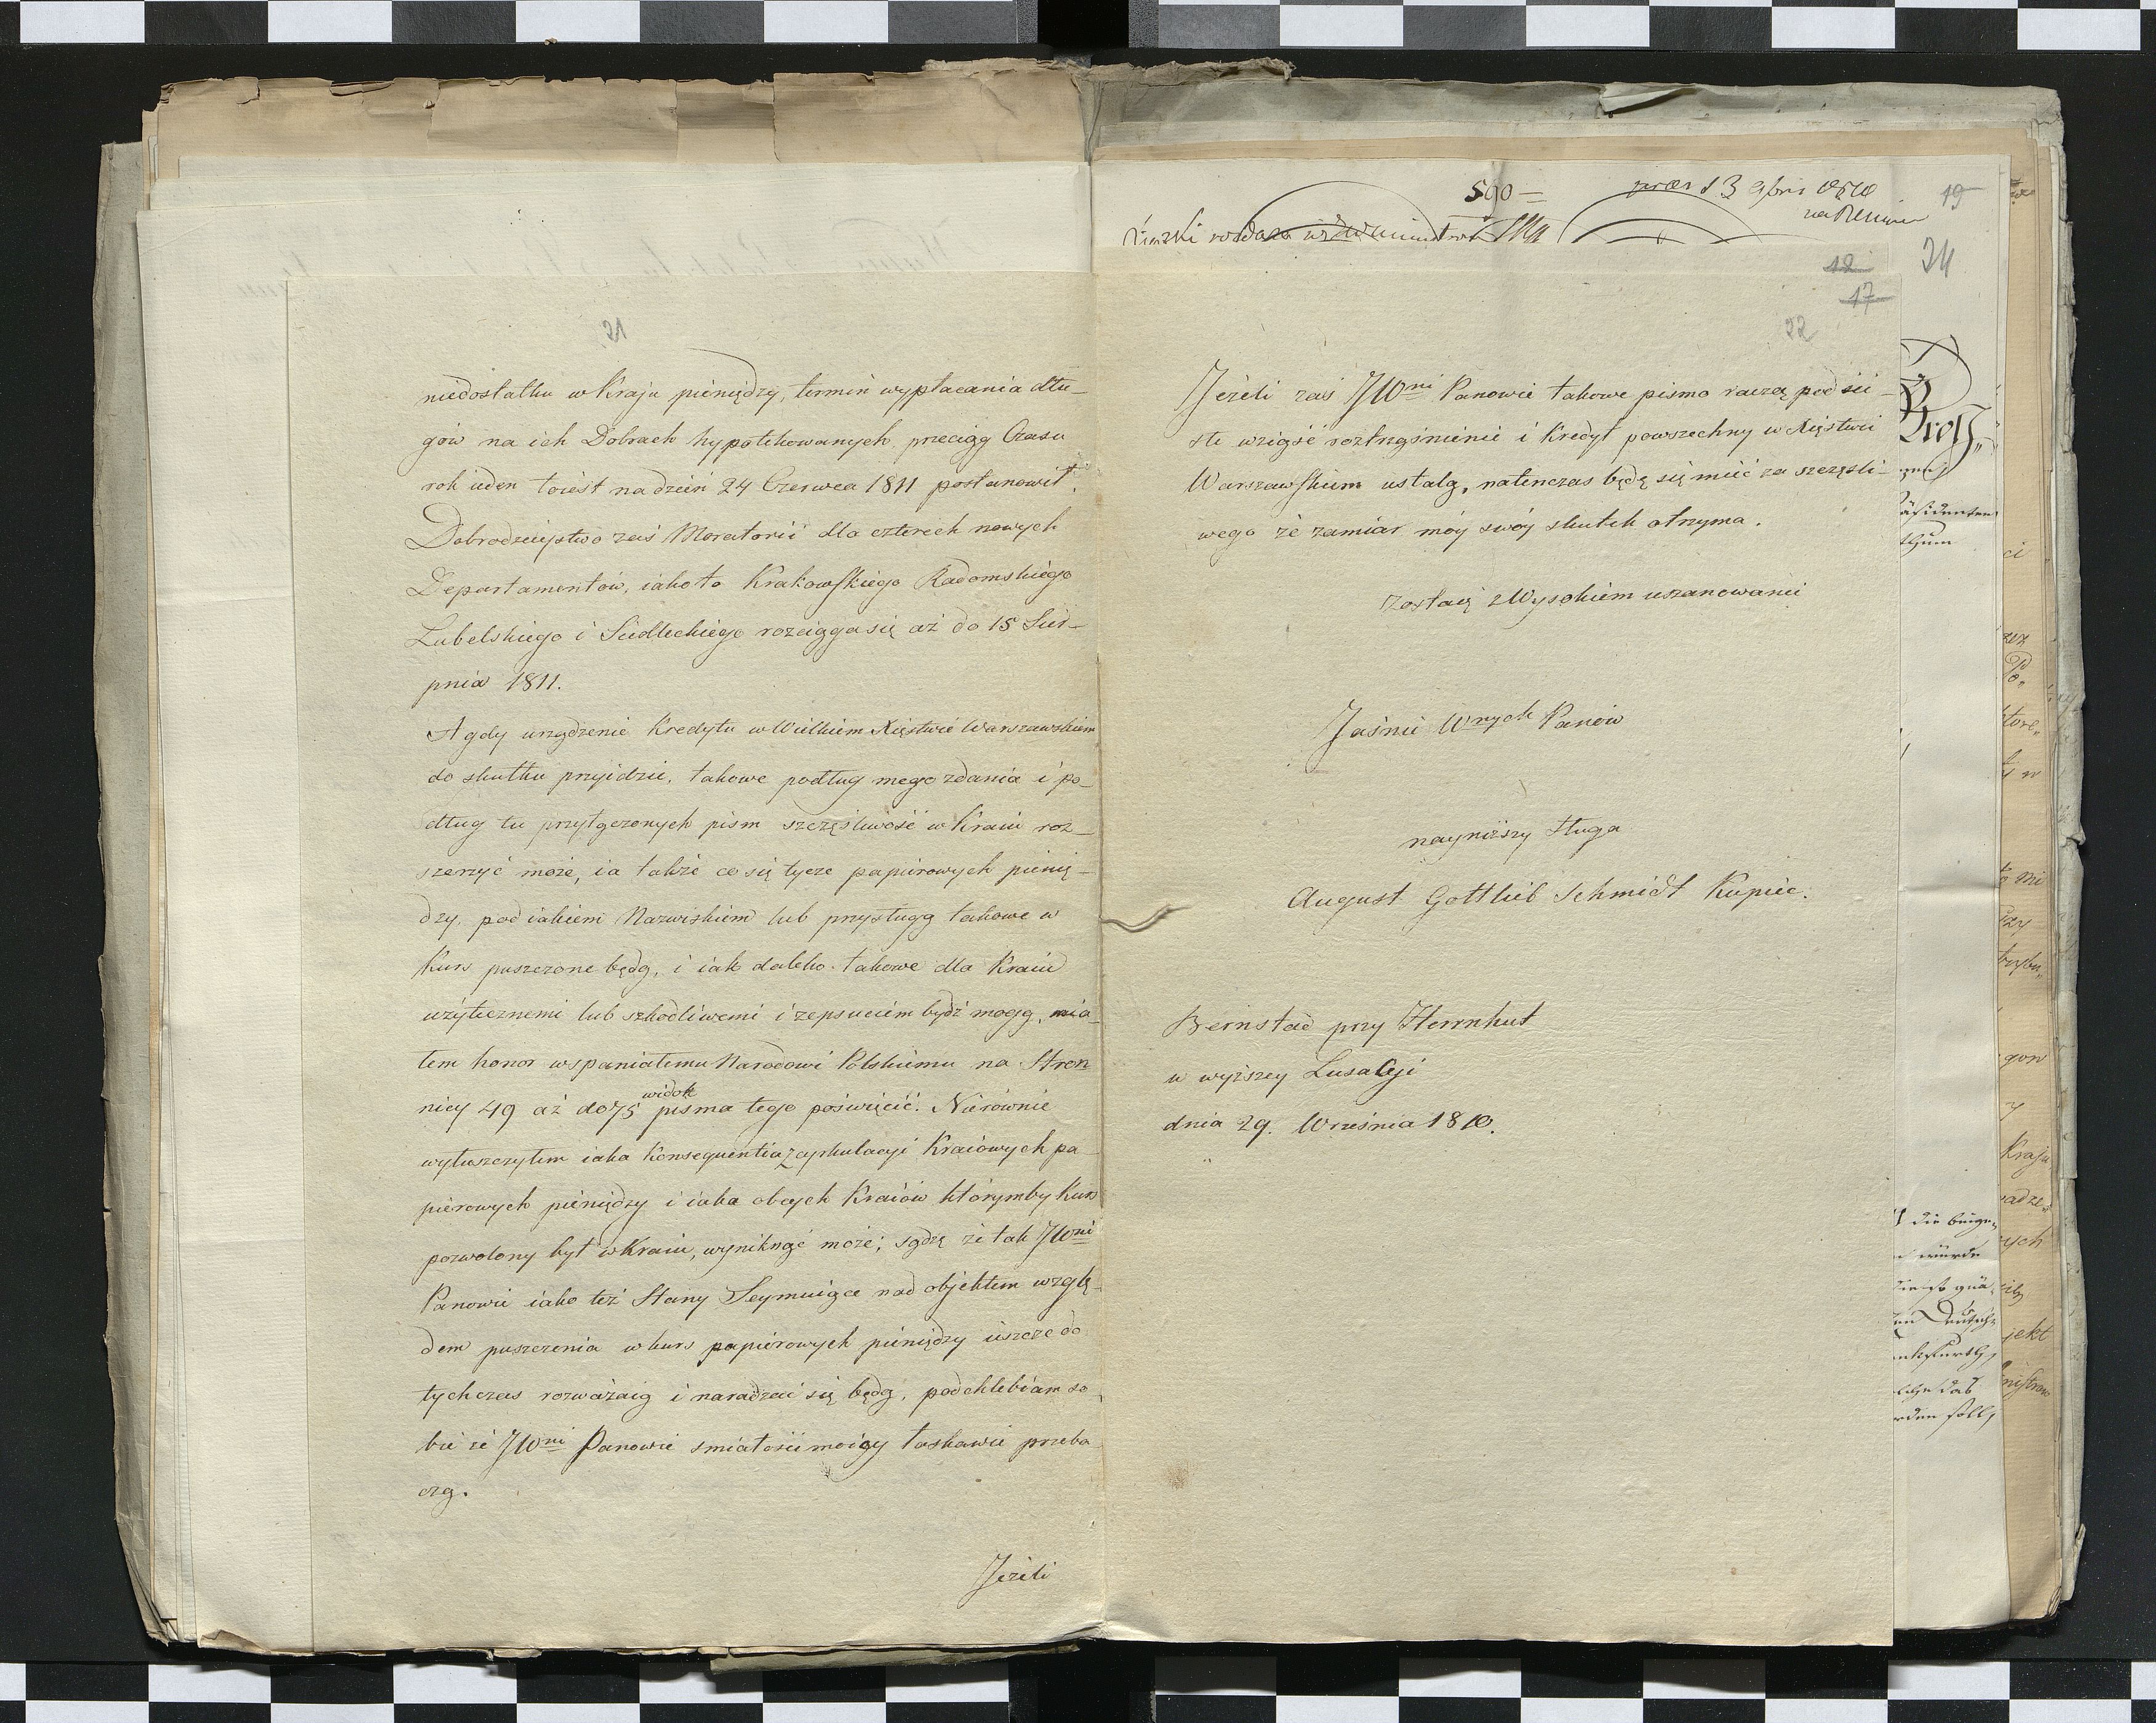 21
niedostatku w Kraju pieniędzy, termin wypłacania dłu-
gów na ich Dobrach hypotekowanych przeciąg Czasu
rok ieden toiest na dzień 24 Czerwca 1811 postanowił.
Dobrodzieystwo zaś Moratorii dla czterech nowych
Departamentów, iako to Krakowskiego Radomskiego
Lubelskiego i Siedleckiego rozciąga się aż do 15 Sier-
pnia 1811.
A gdy urządzenie Kredytu w Wielkiem Xięstwie Warszawskiem
do skutku przyidzie, takowe podług mego zdania i po-
dług tu przyłączonych pism szczęśliwość w Kraiu roz-
szerzyć może, ia także co się tycze papierowych pienię-
dzy, pod iakiem Nazwiskiem lub przysługą takowe w
Kurs puszczone będą, i iak daleko takowe dla Kraiu
użytecznemi lub szkodliwemi i zepsuciem bydź mogą, mia-
łem honor wspaniałemu Narodowi Polskiemu na Stron
nicy 49 aż do 75 widok pisma tego poświęcić. Nierównie
wyłuszczyłem iaka Konsequentia z cyrkulacyi Kraiowych pa-
pierowych pieniędzy i iaka obcych Kraiów którymby Kurs
pozwolony był w Kraiu, wyniknąć może; sądzę że tak JWni
Panowie iako też Stany Seymuiące nad objektem wzglę-
dem puszczenia w kurs papierowych pieniędzy ieszcze do
tychczas rozważaią i naradzać się będą, podchlebiam so-
bie że JWni Panowie smiałości moiey łaskawie przeba
czą.
Jeżeli
590 =
19
24
12
17
22
Jeżeli zaś JWni Panowie takowe pismo raczą pod ści-
słe wziąść roztrząśnienie i Kredyt powszechny w Xięstwie
Warszawskiem ustalą, natenczas będę się mieć za szczęśli-
wego że zamiar móy swóy skutek otrzyma.
Zostaię z Wysokiem uszanowanie
Jaśnie Wnych Panów
nayniższy sługa
August Gottlieb Schmidt Kupiec.
Bernstad przy Herrnhut
w wyższey Lusacyi
dnia 29. Września 1810.